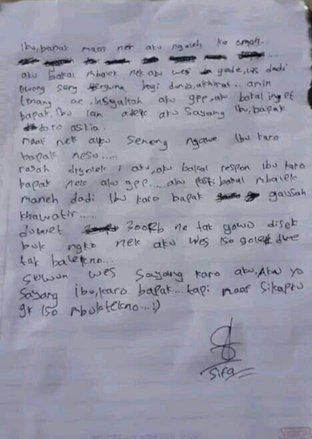 ibu, bapak maaf nek aku ngaleh ko omah...
aku bakal mbalek nek aku wes gede, wis dadi
wong seng berguna bagi dunia, akhirat.. amin
tenang ae.. insyallah aku gpp.. aku bakal inget
bapak, ibu lan adek. aku sayang ibu, bapak
karo askia..
maaf nek aku seneng ngawe ibu karo
bapak neso.....
rasah digoleki aku, aku bakal respon ibu karo
bapak nek aku gpp.... aku pasti bakal mbalek
maneh dadi ibu karo bapak gausah
khawatir.....
duwet 300rb ne tak gowo disek
buk ngko nek aku wes iso golek duwe
tak balekno...
suwun wes sayang karo aku, Aku yo
sayang ibu, karo bapak... tapi maaf sikapku
gk iso mbuktekno...:)
Sifa